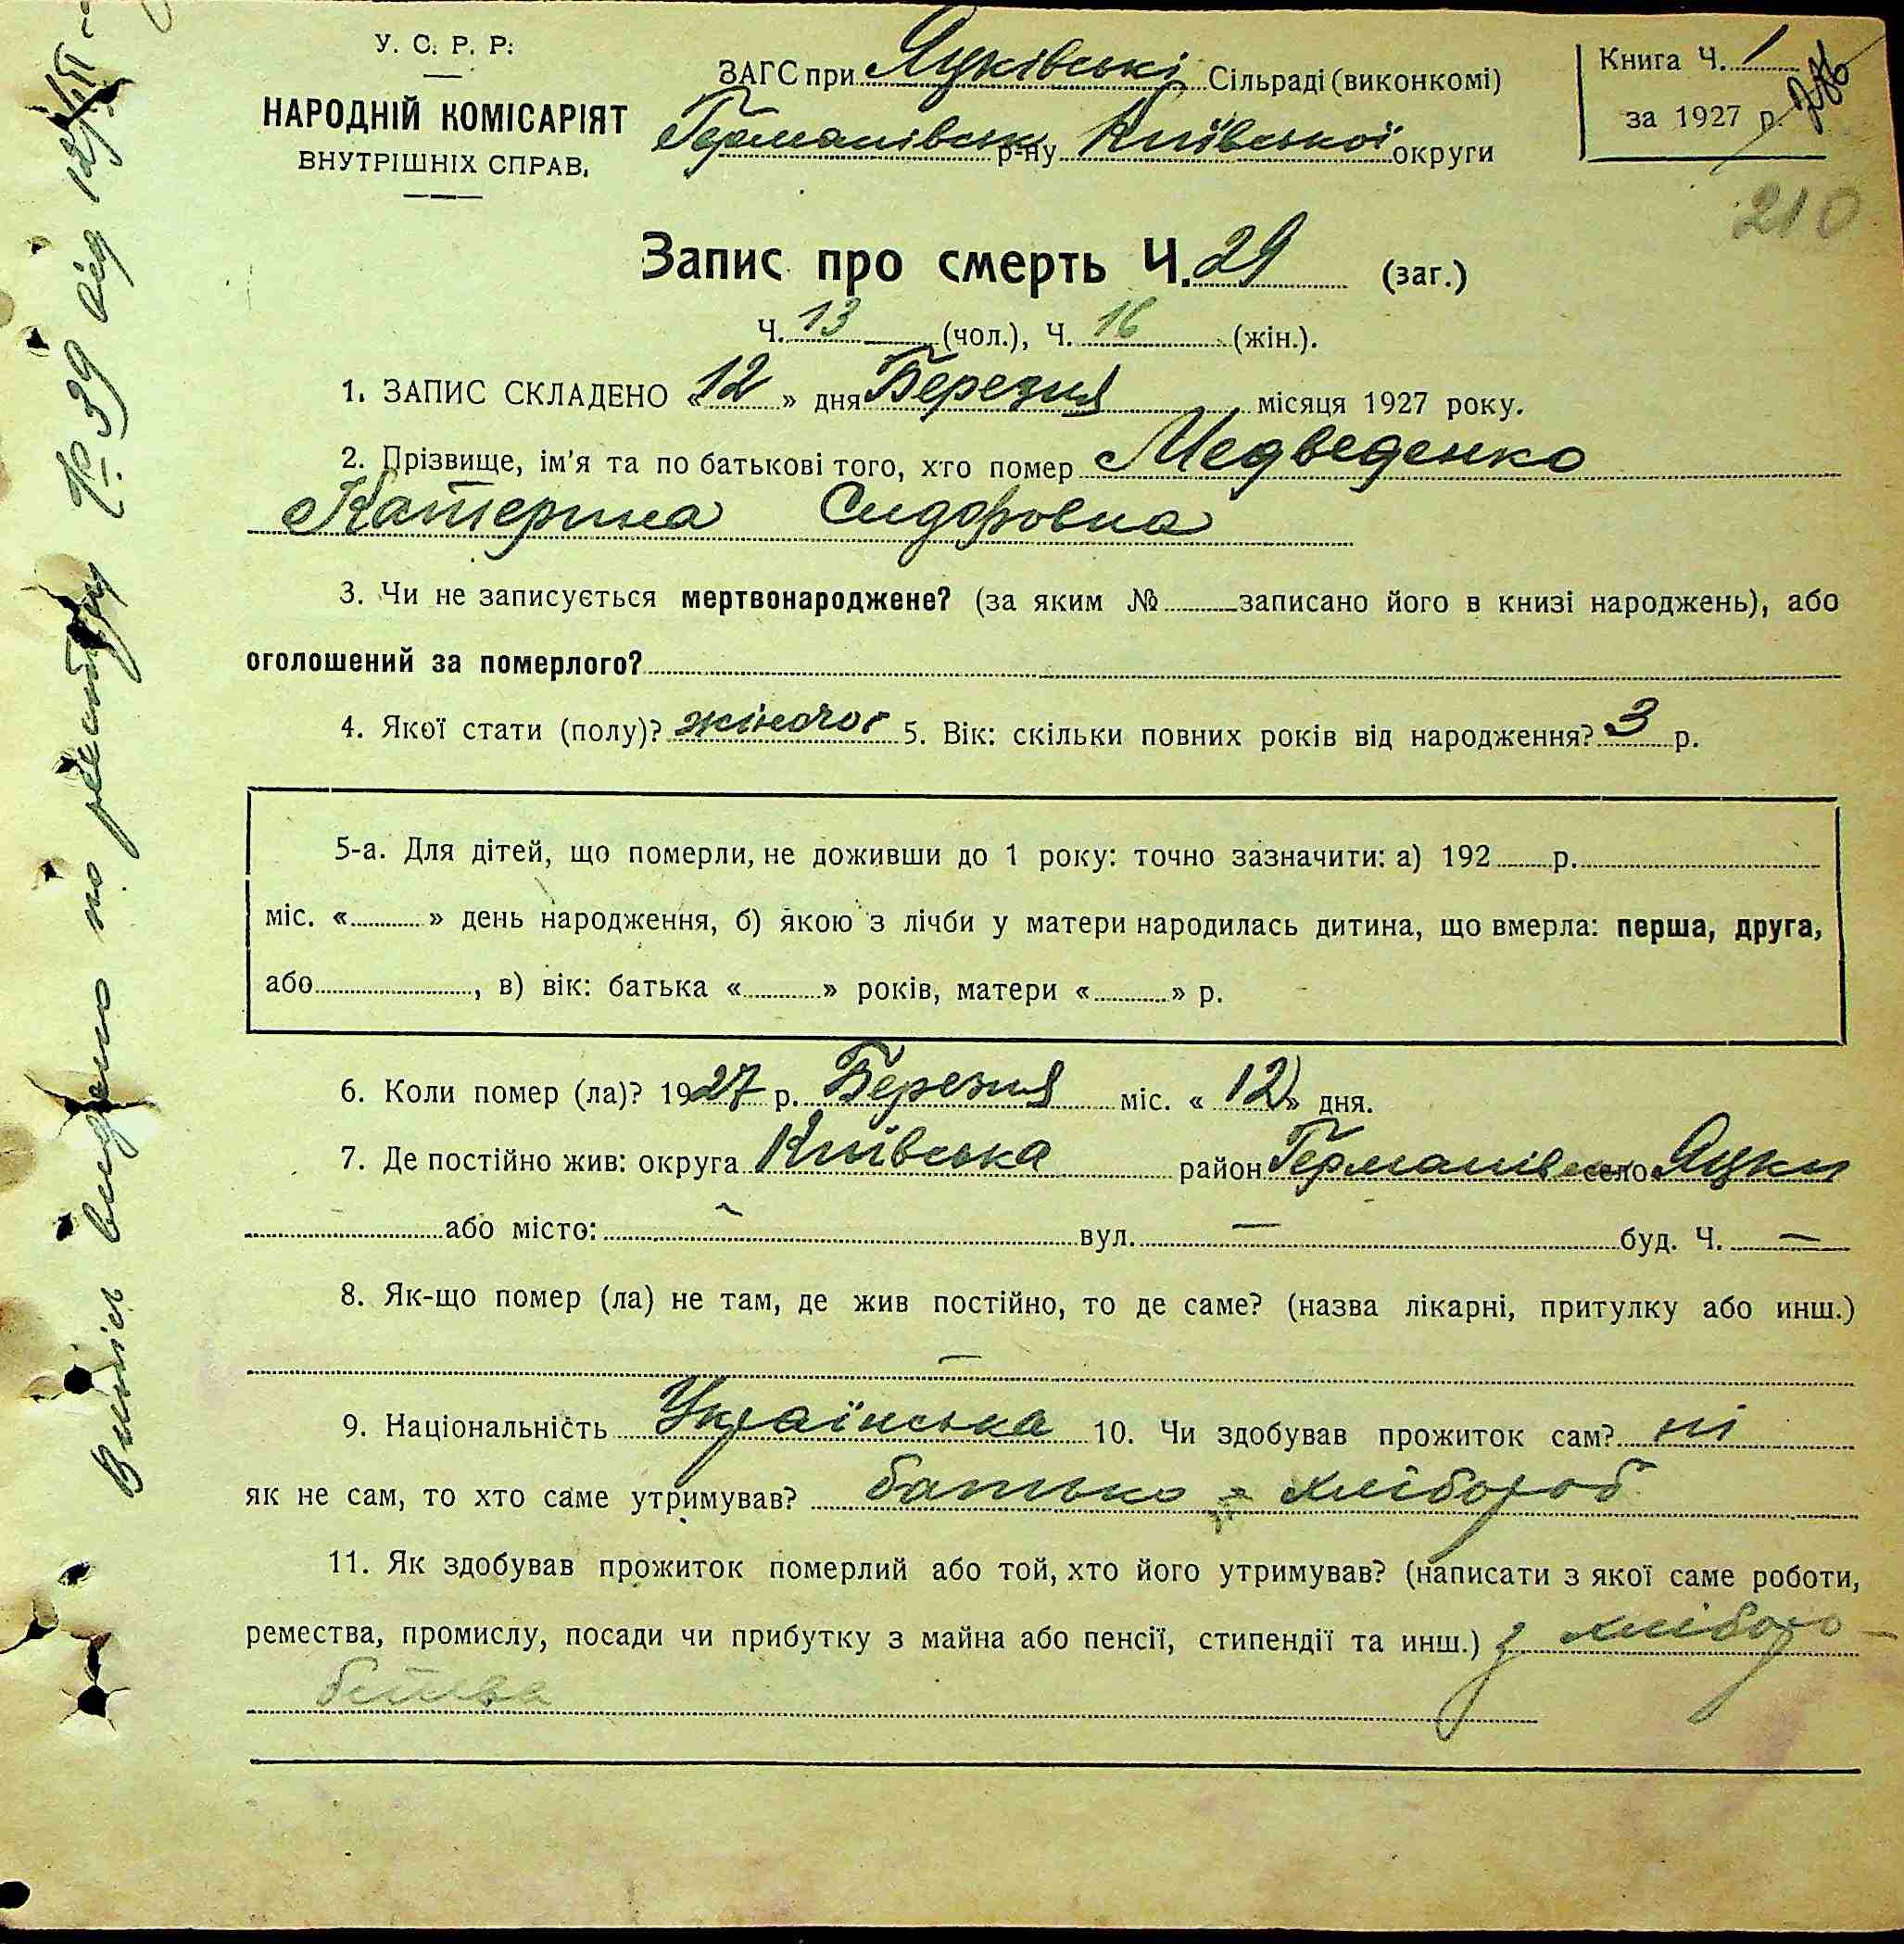 У. С. Р. Р.
НАРОДНІЙ КОМІСАРІЯТ
ВНУТРІШНІХ СПРАВ.
ЗАГС при Яцківські Сільраді (виконкомі)
Германівськ р-ну Київської округи
Книга Ч. 1
за 1927 р.
210
Запис про смерть Ч. 29 (заг.)
Ч. 13 (чол.), Ч. 16 (жін.).
1. ЗАПИС СКЛАДЕНО «12» дня Березня місяця 1927 року.
2. Прізвище, ім'я та по батькові того, хто помер Медведенко
Катерина Сидоровна
3. Чи не записується мертвонароджене? (за яким № записано його в книзі народжень), або
оголошений за померлого?
4. Якої стати (полу)? жіночої 5. Вік: скільки повних років від народження? 3 р.
5-а. Для дітей, що померли, не доживши до 1 року: точно зазначити: а) 192 р.
міс. « » день народження, б) якою з лічби у матери народилась дитина, що вмерла: перша, друга,
або , в) вік: батька « » років, матери « » р.
6. Коли помер (ла)? 1927 р. Березня міс. «12» дня.
7. Де постійно жив: округа Київська район Германівськ село Яцки
або місто: — вул. — буд. Ч. —
8. Як-що помер (ла) не там, де жив постійно, то де саме? (назва лікарні, притулку або инш.)
—
9. Національність Українська 10. Чи здобував прожиток сам? ні
як не сам, то хто саме утримував? батько - хлібороб
11. Як здобував прожиток померлий або той, хто його утримував? (написати з якої саме роботи,
ремества, промислу, посади чи прибутку з майна або пенсії, стипендії та инш.) з хліборо-
бства
Витяг видано по реєстру № 39 від